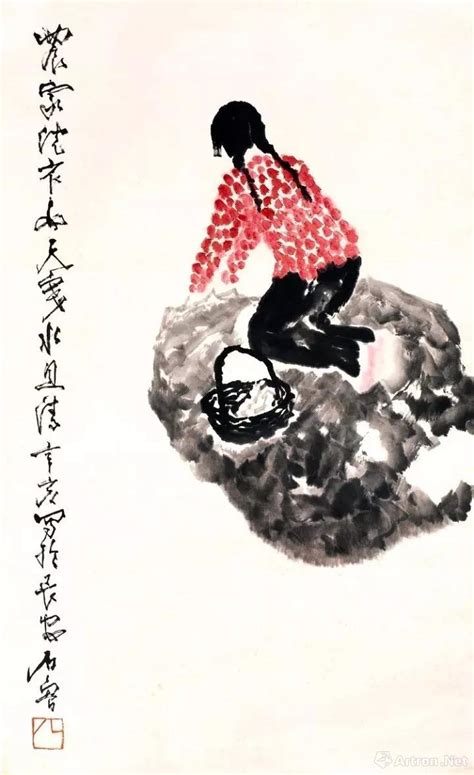 農家洗衣女天寒水且清辛亥写於長安石魯
Artron.Net